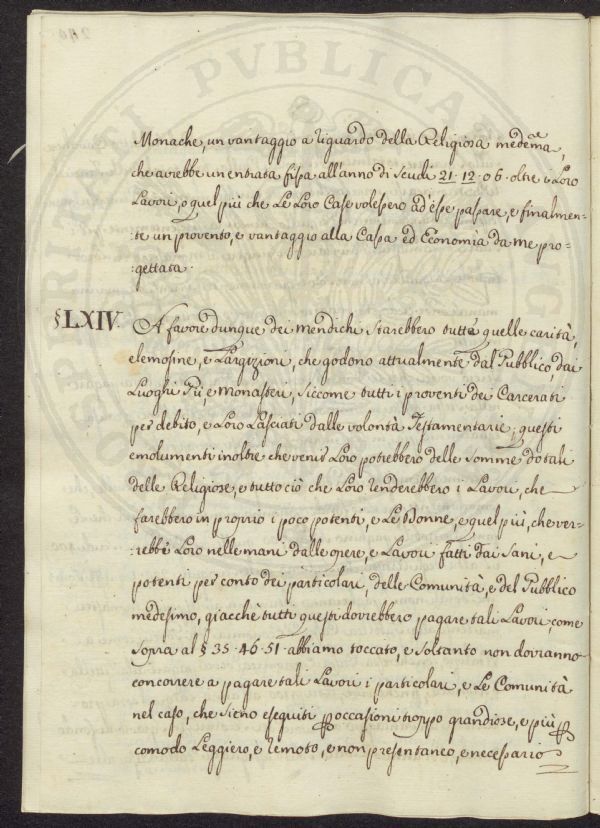 Monache, un vantaggio a riguardo della Religiosa medema,
che avrebbe un entrata fissa all'anno di Scudi 21·12·06· oltre i Loro
Lavori, o quel più che Le Loro Case volessero ad' esse passare, e finalmen-
:te un provento, e vantaggio alla Cassa ed Economia da me pro-
:gettata.
§LXIV. A favore dunque dei Mendichi starebbero tutte quelle carità,
elemosine, e Largizioni, che godono attualmente dal Pubblico, dai
Luoghi Pii, e Monasteri, siccome tutti i proventi dei Carcerati
per debito, e Loro Lasciati dalle volontà Testamentarie; questi
emolumenti inoltre che venir Loro potrebbero delle somme dotali
delle Religiose, e tutto ciò che Loro renderebbero i Lavori, che
farebbero in proprio i poco potenti, e Le Donne, e quel più, che ver-
:rebbe Loro nelle mani dalle opere, e Lavori fatti dai Sani, e
potenti per conto dei particolari, delle Comunità, e del Pubblico
medesimo, giacchè tutti questi dovrebbero pagare tali Lavori, come
sopra al § 35·46·51· abbiamo toccato, e soltanto non dovranno
concorrere a pagare tali Lavori i particolari, e Le Comunità
nel caso, che sieno eseguiti occasioni troppo grandiose, e più
comodo Leggiero, e remoto, e non presentaneo, e necessario
OSPERITATI PVBLICAE